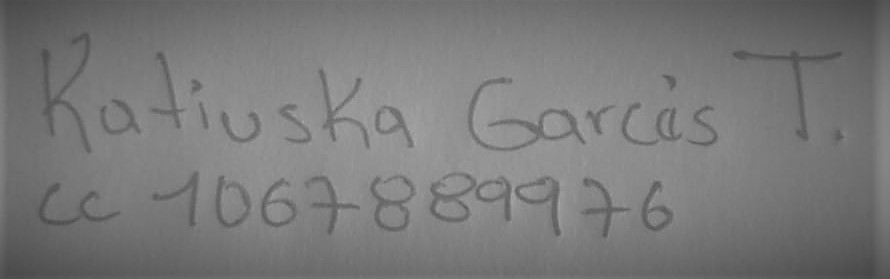 Katiuska Garcés T.
cc 1067889976